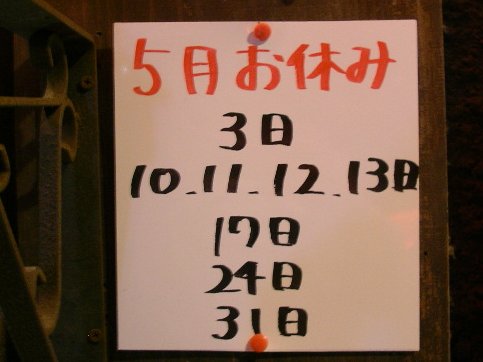 5月お休み
3日
10.11.12.13日
17日
24日
31日